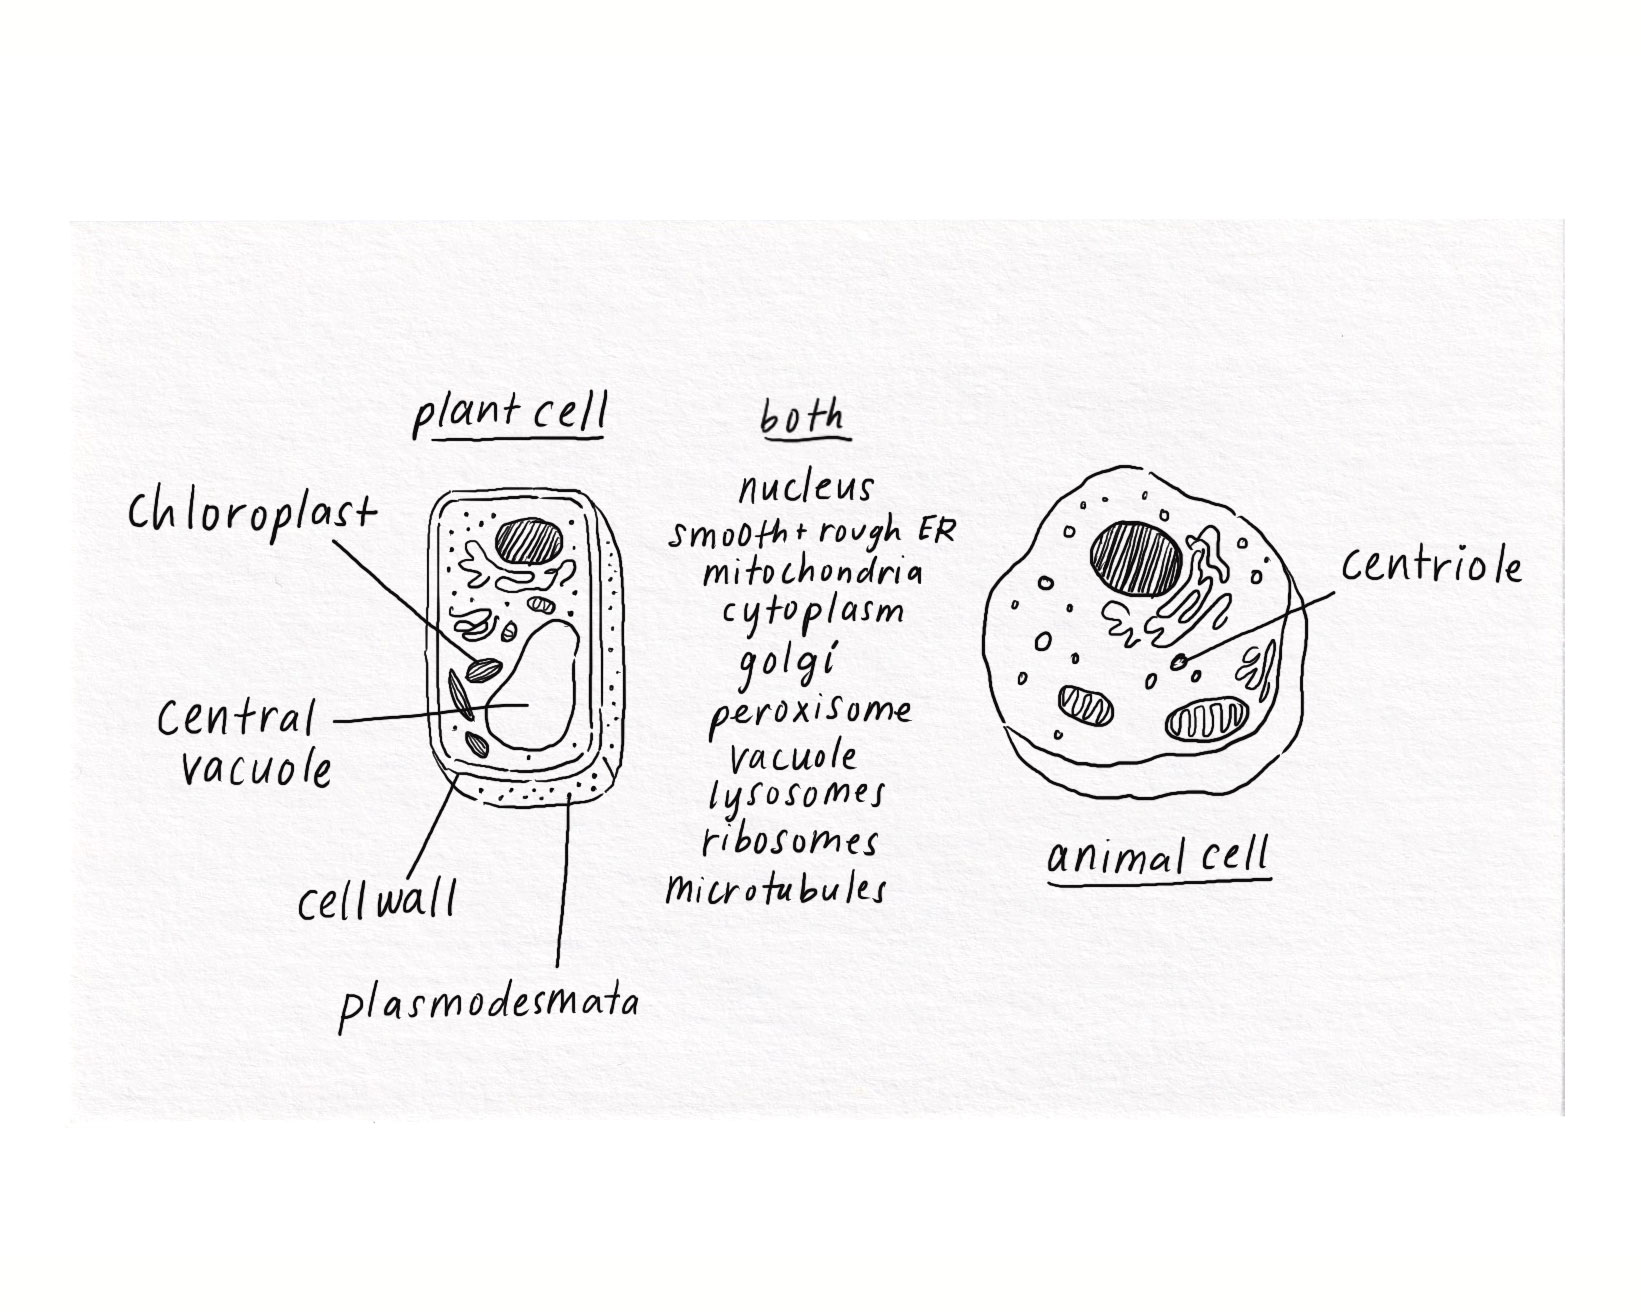 plant cell
chloroplast
central
vacuole
cell wall
plasmodesmata
both
nucleus
smooth + rough ER
mitochondria
cytoplasm
golgi
peroxisome
vacuole
lysosomes
ribosomes
microtubules
centriole
animal cell